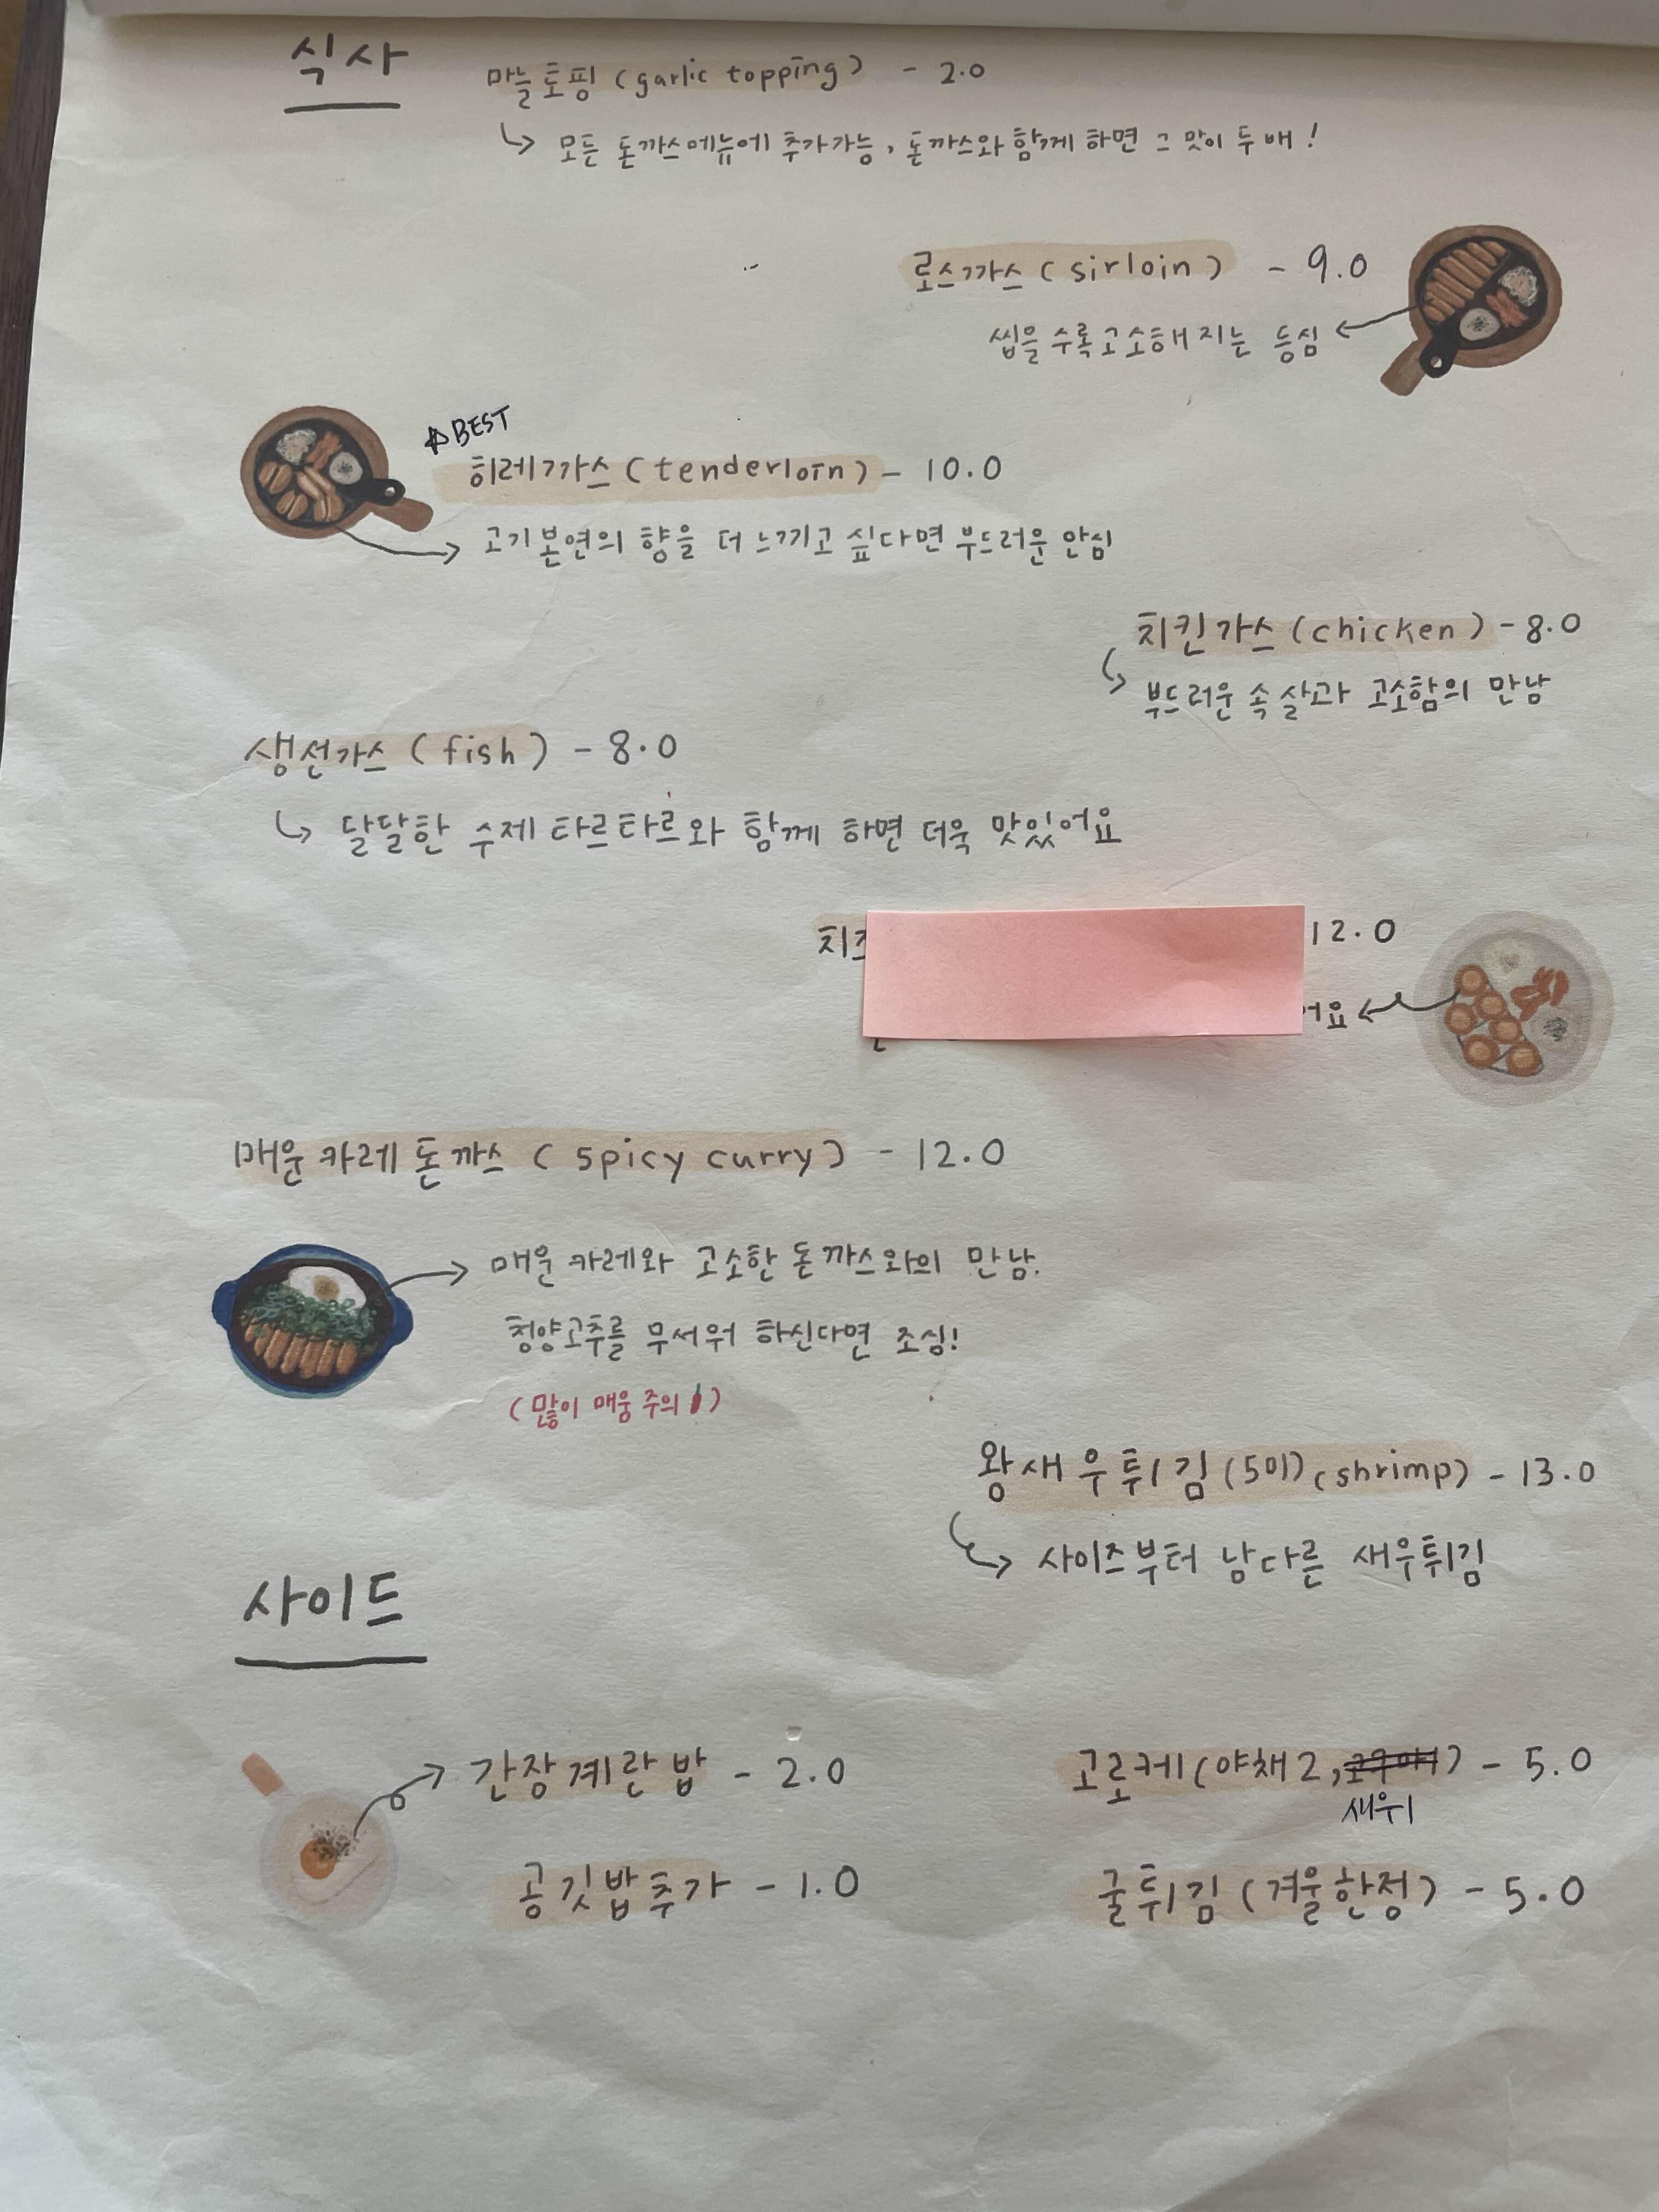 식사
마늘토핑 (garlic topping) - 2.0
모든 돈까스메뉴에 추가가능, 돈까스와 함께 하면 그 맛이 두 배!
로스까스 (sirloin) - 9.0
씹을수록 고소해지는 등심
☆BEST
히레까스 (tenderloin) - 10.0
고기본연의 향을 더 느끼고 싶다면 부드러운 안심
치킨가스 (chicken) - 8.0
부드러운 속살과 고소함의 만남
생선가스 (fish) - 8.0
달달한 수제 타르타르와 함께 하면 더욱 맛있어요
12.0
요
매운 카레 돈까스 (spicy curry) - 12.0
매운 카레와 고소한 돈까스와의 만남.
청양고추를 무서워 하신다면 조심!
(많이 매움 주의!)
왕새우튀김(5미) (shrimp) - 13.0
사이즈부터 남다른 새우튀김
사이드
간장계란밥 - 2.0
고로케(야채2, ) - 5.0
새우1
공깃밥추가 - 1.0
굴튀김 (겨울한정) - 5.0